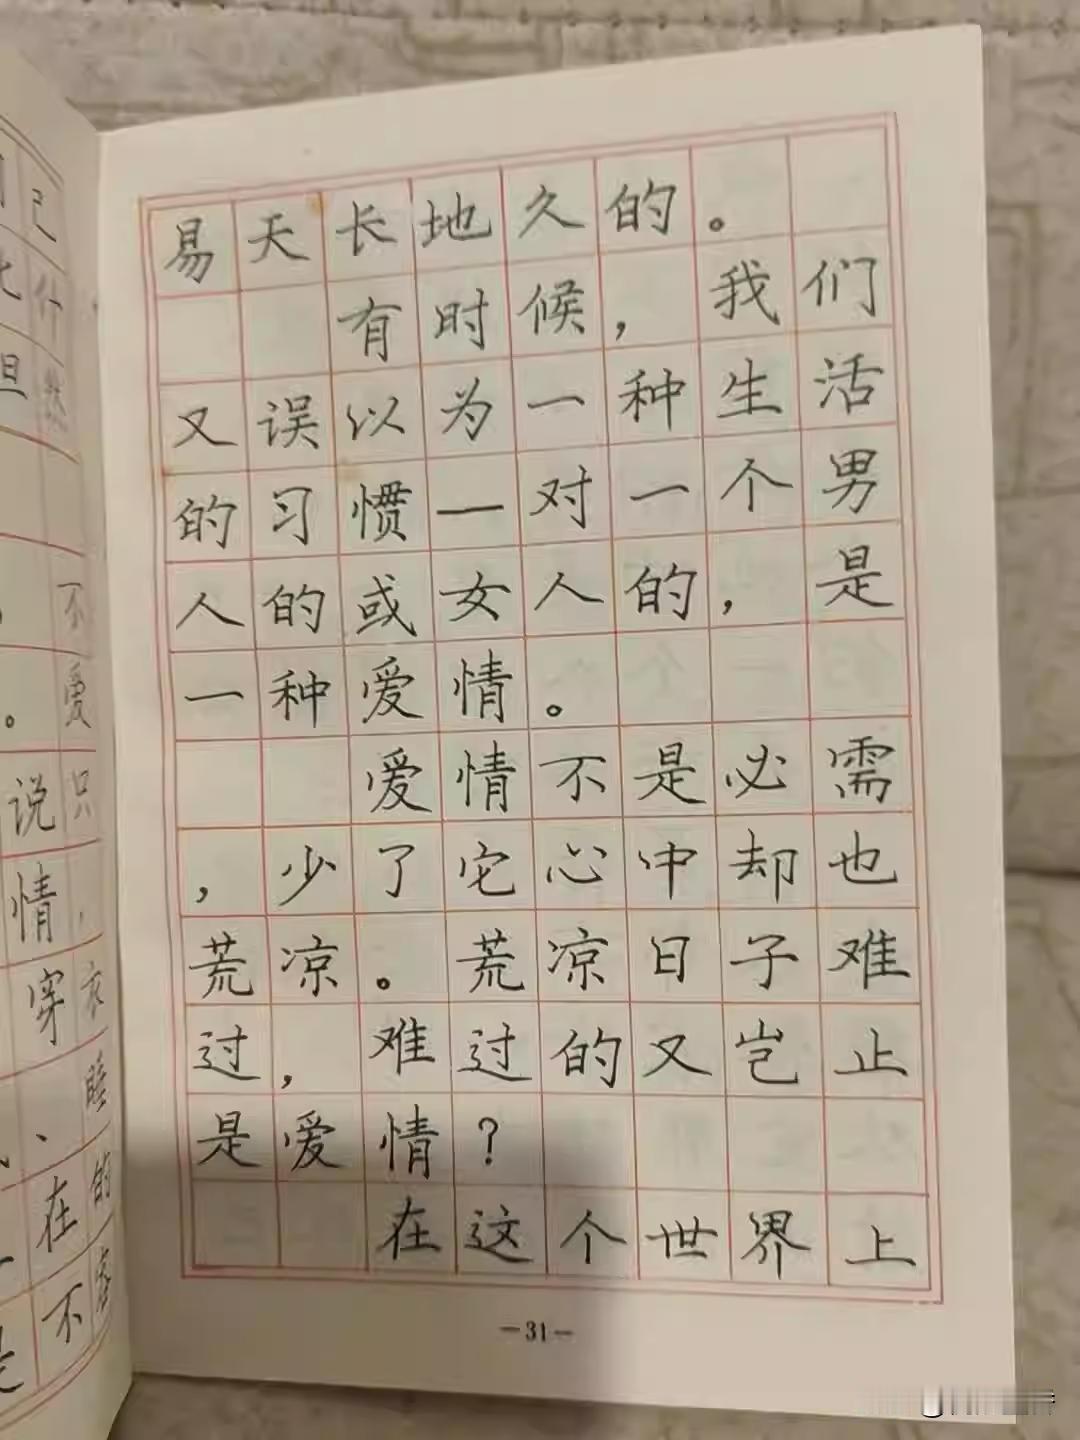 易天长地久的。
有时候，我们
又误以为一种生活
的习惯—对一个男
人的或女人的，是
一种爱情。
爱情不是必需
，少了它心中却也
荒凉。荒凉日子难
过，难过的又岂止
是爱情？
在这个世界上
—31—
己
什
然
不
。爱
说只
情，
穿衣
、睡
在的
不容